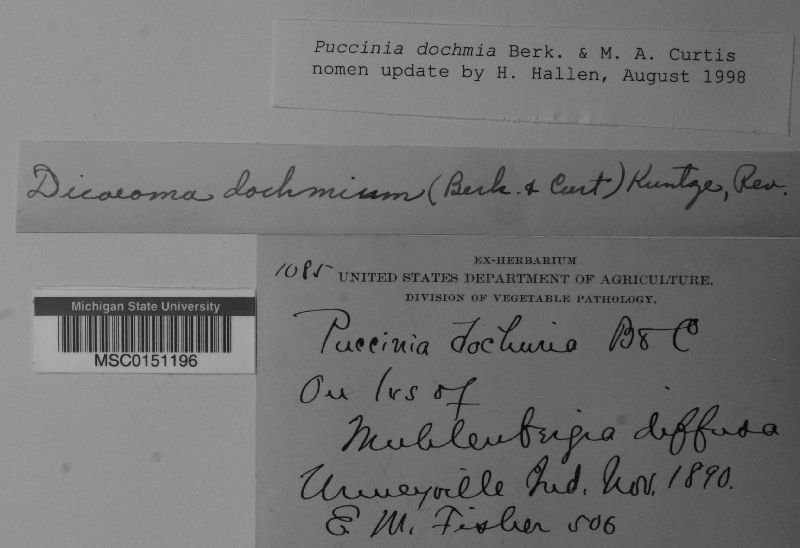 Puccinia dochmia Berk. & M. A. Curtis
nomen update by H. Hallen, August 1998
Dicaeoma dochmium (Berk. & Curt) Kuntze, Rev.
1085
EX-HERBARIUM
UNITED STATES DEPARTMENT OF AGRICULTURE.
DIVISION OF VEGETABLE PATHOLOGY.
Michigan State University
MSC0151196
Puccinia dochmia B & C
On lvs of
Muhlenbergia diffusa
Urmeyville Ind. Nov. 1890.
E M. Fisher 506